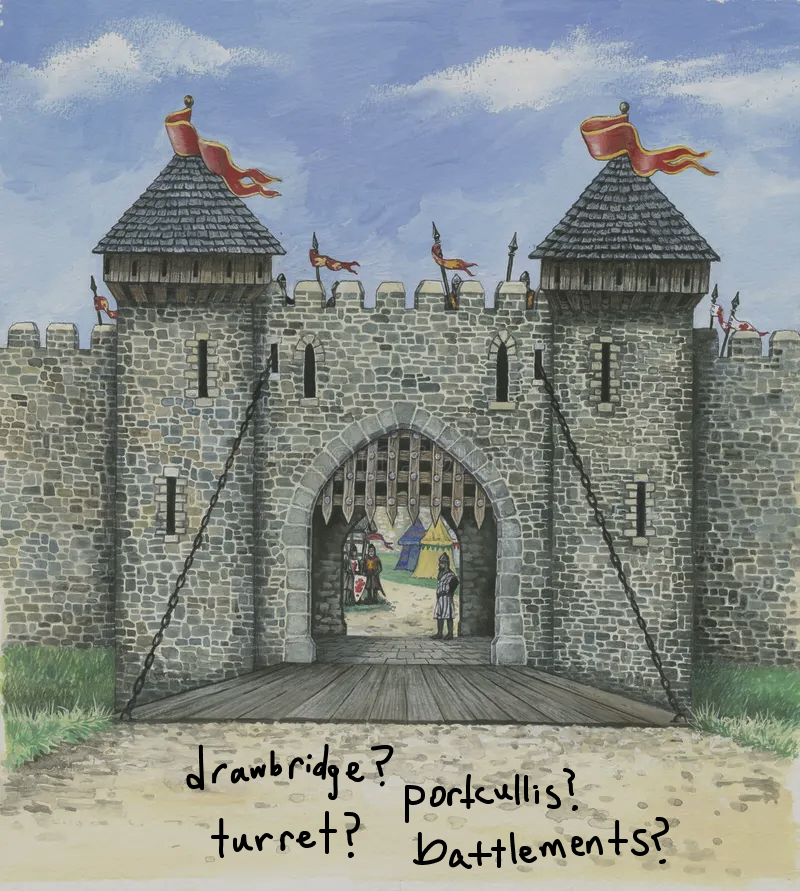 drawbridge?
portcullis?
turret?
battlements?